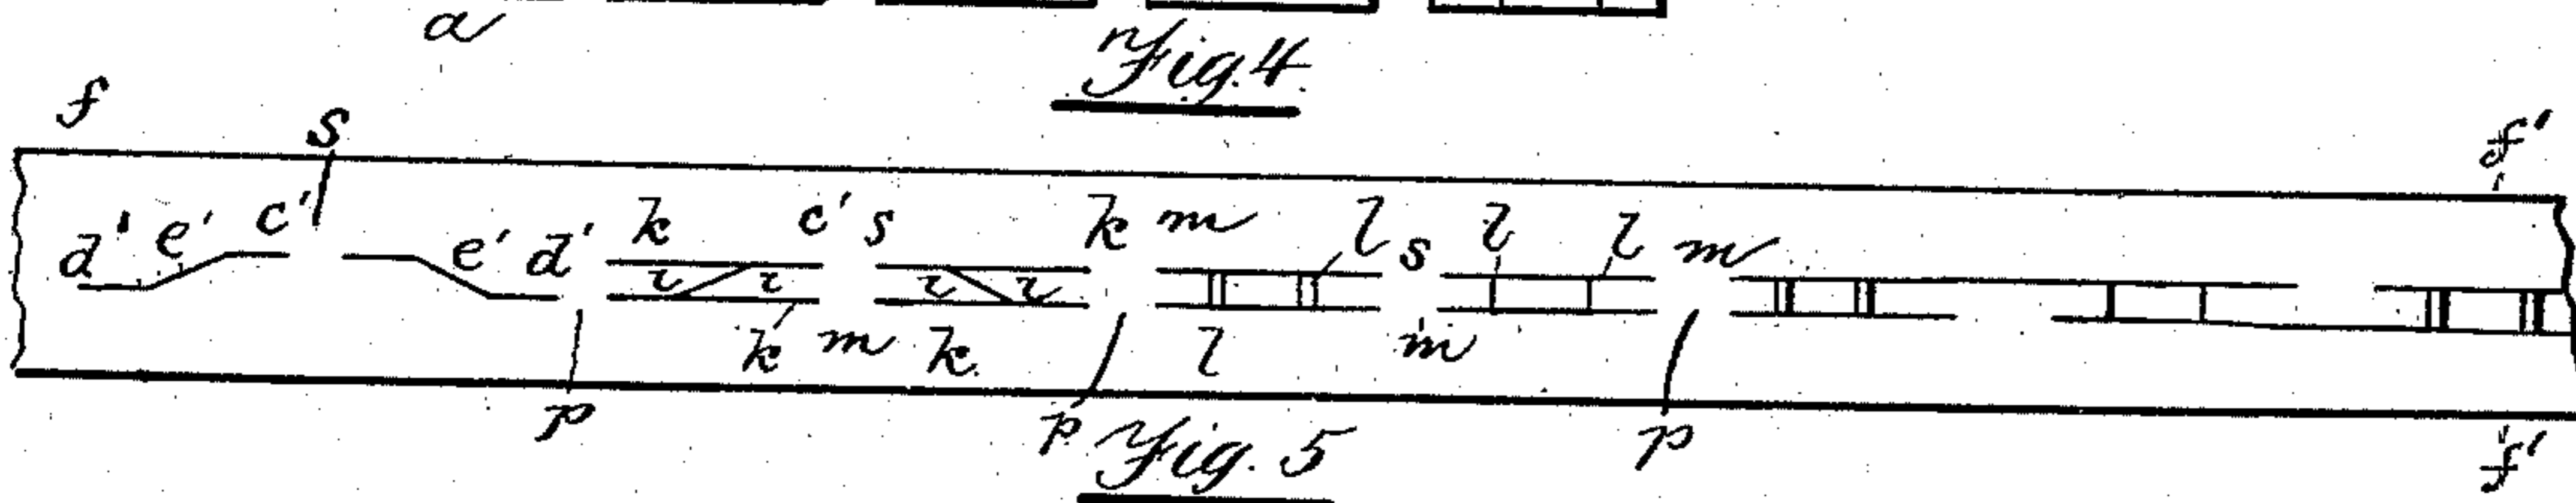 a
Fig. 4.
f s f'
d' e' c' e' d' k c' s k m l s l l m
r r r r
k m k l m
p p p f'
Fig. 5